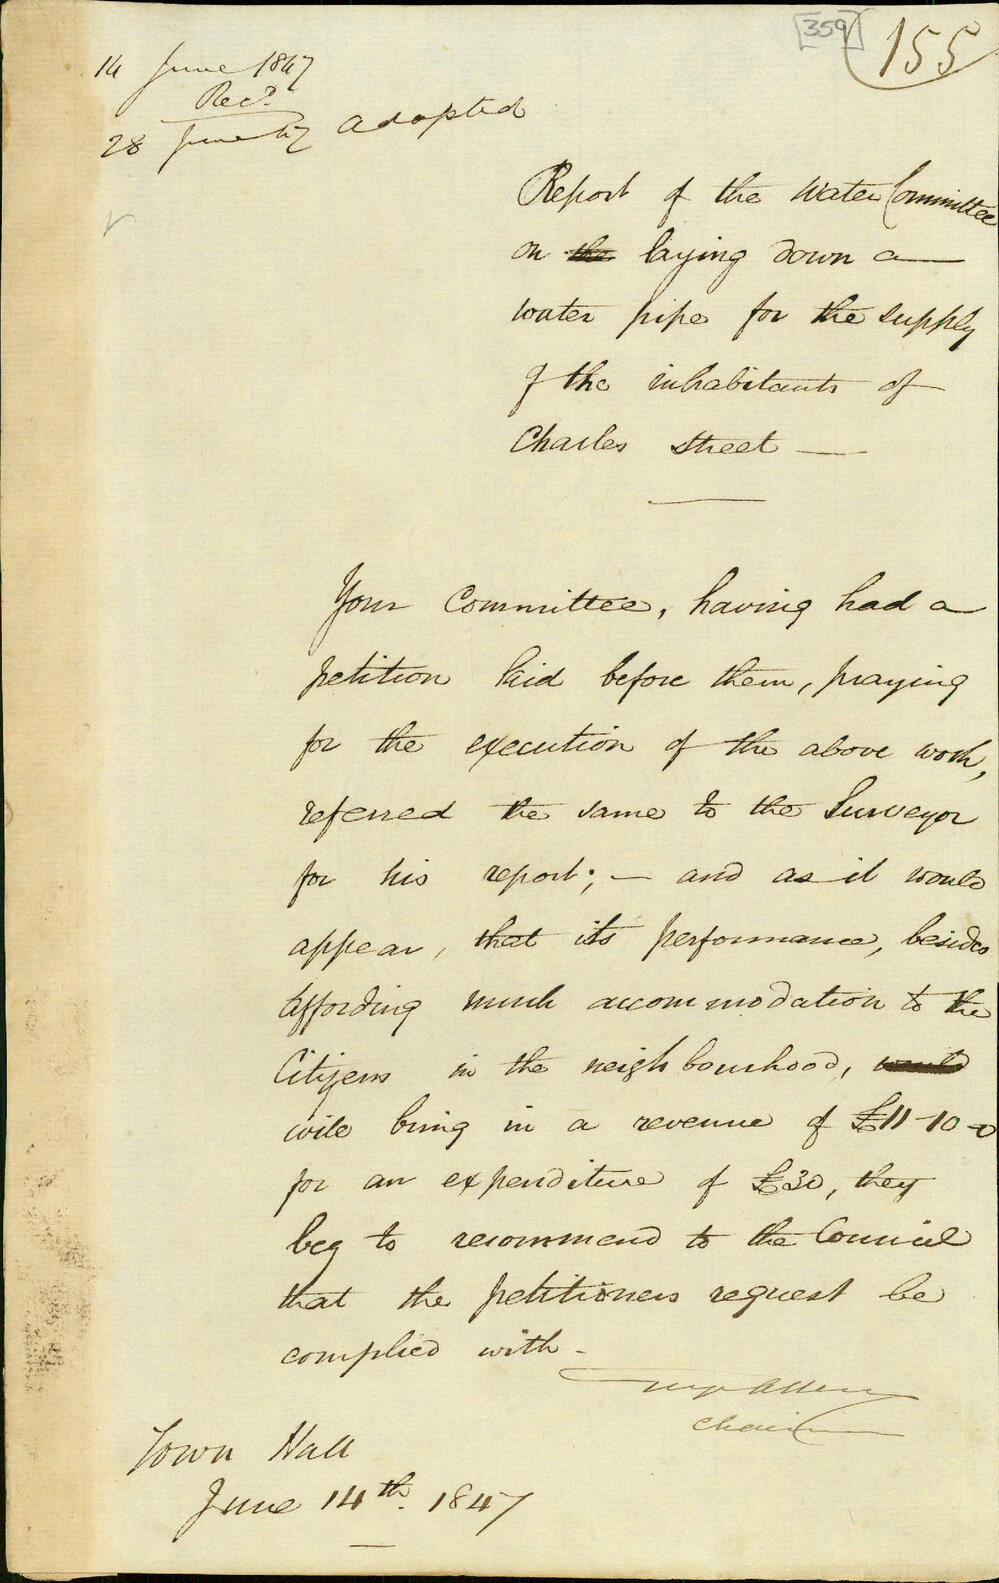 [359] 155
14 June 1847
Recd.
28 June 47 adopted
Report of the Water Committee
on the laying down a
water pipe for the supply
of the inhabitants of
Charles Street —
Your Committee, having had a
petition laid before them, praying
for the execution of the above work,
referred the same to the Surveyor
for his report; — and as it would
appear, that its performance, besides
affording much accommodation to the
Citizens in the neighbourhood, would
will bring in a revenue of £11-10-0
for an expenditure of £30, they
beg to recommend to the Council
that the petitioners request be
complied with -
Allen
Chairman
Town Hall
June 14th. 1847